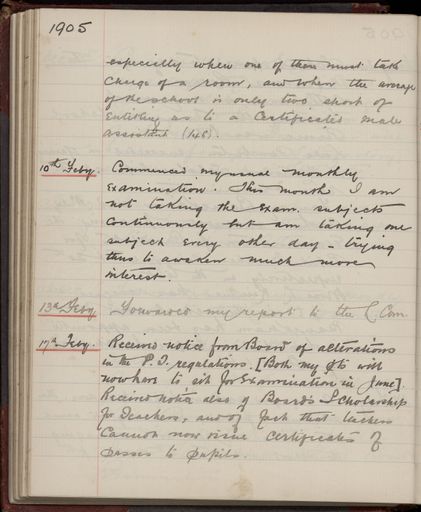 1905
especially when one of them must take
charge of a room, and when the average
of the school is only two short of
entitling us to a Certificated male
assistant (148).
10th Feby. Commenced my usual monthly
Examination. This month I am
not taking the Exam. subjects
continuously but am taking one
subject every other day - trying
thus to awaken much more
interest.
13th Feby. Forwarded my report to the Com.
17th Feby. Receive notice from Board of alterations
in the P.T. regulations. [Both my Pts will
now have to sit for Examination in June].
Received notice also of Board's Scholarship
for Teachers, and of fact that teachers
cannot now issue certificates of
passes to pupils.